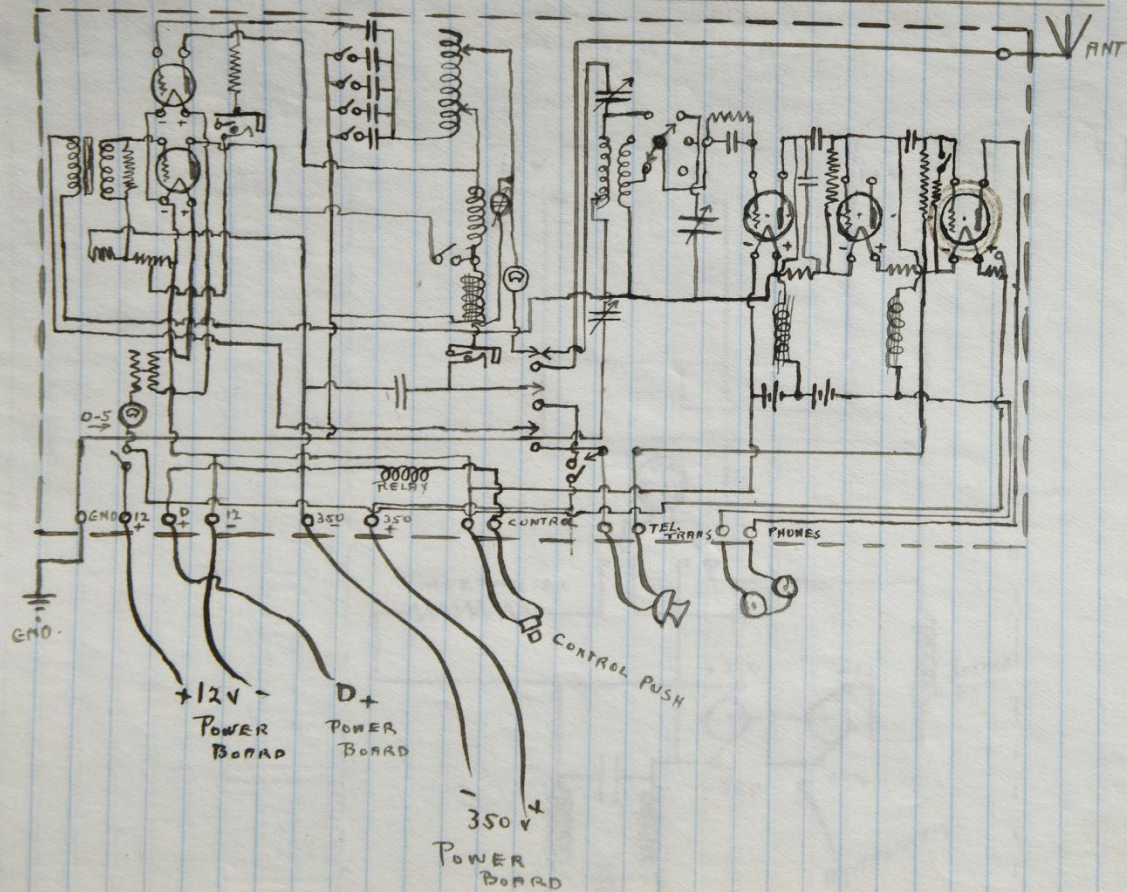 ANT
0-5
RELAY
GND 12 + D + 12 - 350 - 350 + CONTROL TEL. TRANS PHONES
GND.
CONTROL PUSH
+ 12 V -
POWER
BOARD
D +
POWER
BOARD
- 350 V +
POWER
BOARD